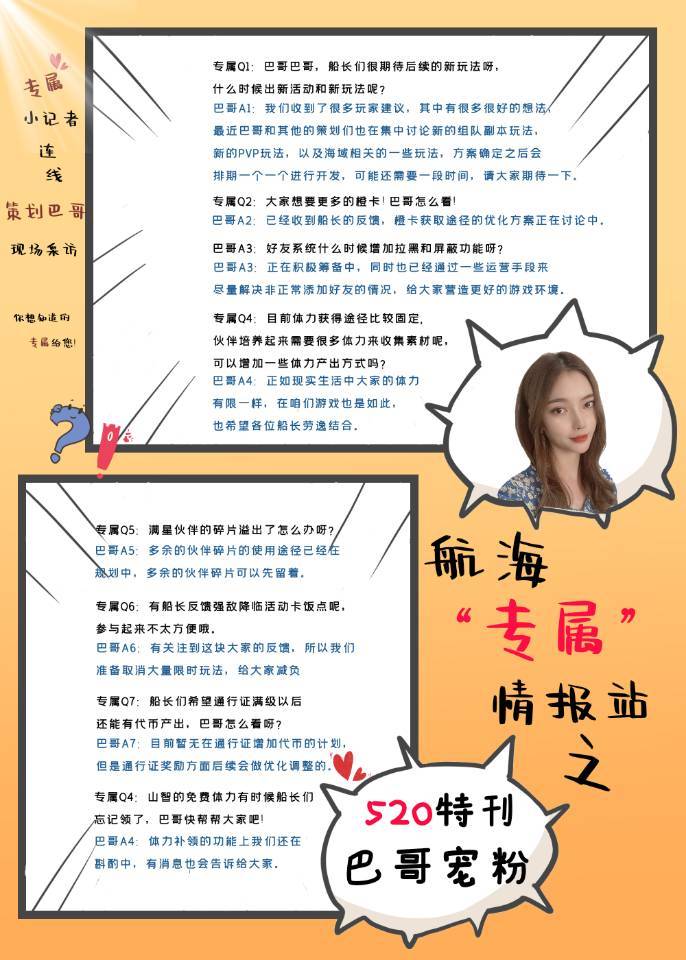 专属
小记者
连
线
策划巴哥
现场采访
你想知道的
专属给您!
专属Q1：巴哥巴哥，船长们很期待后续的新玩法呀，
什么时候出新活动和新玩法呢?
巴哥A1：我们收到了很多玩家建议，其中有很多很好的想法，
最近巴哥和其他的策划们也在集中讨论新的组队副本玩法，
新的PVP玩法，以及海域相关的一些玩法，方案确定之后会
排期一个一个进行开发，可能还需要一段时间，请大家期待一下。
专属Q2：大家想要更多的橙卡!巴哥怎么看!
巴哥A2：已经收到船长的反馈，橙卡获取途径的优化方案正在讨论中。
巴哥A3：好友系统什么时候增加拉黑和屏蔽功能呀?
巴哥A3：正在积极筹备中，同时也已经通过一些运营手段来
尽量解决非正常添加好友的情况，给大家营造更好的游戏环境。
专属Q4：目前体力获得途径比较固定，
伙伴培养起来需要很多体力来收集素材呢，
可以增加一些体力产出方式吗?
巴哥A4：正如现实生活中大家的体力
有限一样，在咱们游戏也是如此，
也希望各位船长劳逸结合。
专属Q5：满星伙伴的碎片溢出了怎么办呀?
巴哥A5：多余的伙伴碎片的使用途径已经在
规划中，多余的伙伴碎片可以先留着。
专属Q6：有船长反馈强敌降临活动卡饭点呢，
参与起来不太方便哦。
巴哥A6：有关注到这块大家的反馈，所以我们
准备取消大量限时玩法，给大家减负
专属Q7：船长们希望通行证满级以后
还能有代币产出，巴哥怎么看呀?
巴哥A7：目前暂无在通行证增加代币的计划，
但是通行证奖励方面后续会做优化调整的。
专属Q4：山智的免费体力有时候船长们
忘记领了，巴哥快帮帮大家吧!
巴哥A4：体力补领的功能上我们还在
斟酌中，有消息也会告诉给大家。
航海
“专属”
情报站
之
520特刊
巴哥宠粉